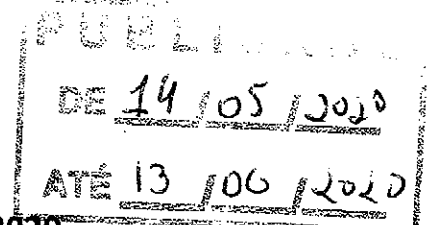 DE 14 / 05 / 2020
ATÉ 13 / 06 / 2020